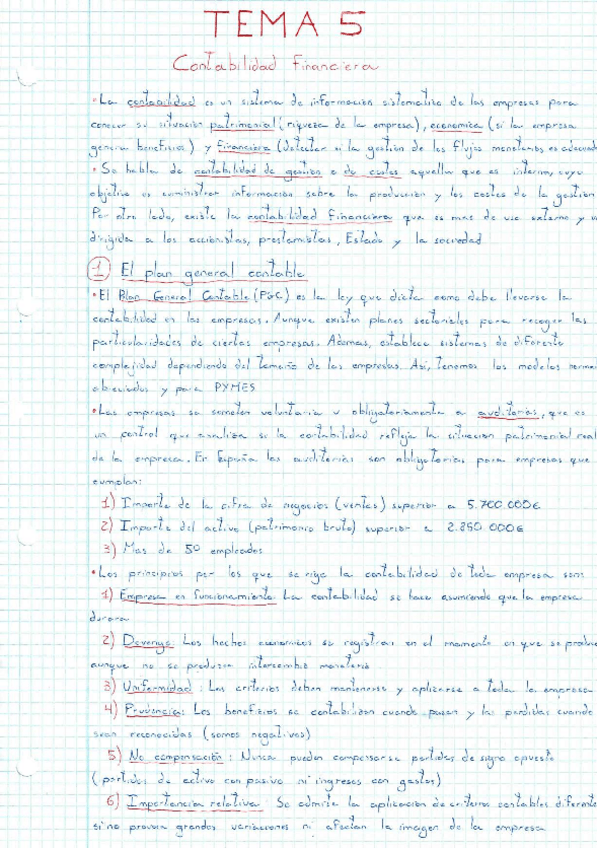 TEMA 5
Contabilidad Financiera
• La contabilidad es un sistema de información sistematiza de las empresas para
conocer su situación patrimonial (riqueza de la empresa), economica (si la empresa
genera beneficios) y financiera (detectar si la gestión de los flujos monetarios es adecuad
• Se habla de contabilidad de gestión o de costes aquella que es interna, cuyo
objetivo es suministrar información sobre la producción y los costes de la gestión
Por otro lado, existe la contabilidad financiera que es mas de uso externo y
dirigida a los accionistas, prestamistas, Estado y la sociedad
1 El plan general contable
• El Plan General Contable (PGC) es la ley que dicta como debe llevarse la
contabilidad en las empresas. Aunque existen planes sectoriales para recoger las
particularidades de ciertas empresas. Ademas, establece sistemas de diferente
complejidad dependiendo del tamaño de las empresas. Asi, tenemos los modelos
abreviados y para PYMES
• Las empresas se someten voluntaria u obligatoriamente a auditorias, que es
un control que analiza si la contabilidad refleja la situacion patrimonial real
de la empresa. En España las auditorias son obligatorias para empresas que
cumplan:
1) Importe de la cifra de negocios (ventas) superior a 5.700.000€
2) Importe del activo (patrimonio bruto) superior a 2.850.000€
3) Mas de 50 empleados
• Los principios por los que se rige la contabilidad de toda empresa son:
1) Empresa en funcionamiento: La contabilidad se hace asumiendo que la empresa
durara
2) Devengo: Los hechos economicos se registran en el momento en que se produce
aunque no se produzca intercambio monetario
3) Uniformidad: Los criterios deben mantenerse y aplicarse a toda la empresa
4) Prudencia: Los beneficios se contabilizan cuando pasan y las perdidas cuando
sean reconocidas (somos negativos)
5) No compensación: Nunca pueden compensarse partidas de signo opuesto
(partidas de activo con pasivo ni ingresos con gastos)
6) Importancia relativa: Se admite la aplicacion de criterios contables diferente
si no provoca grandes variaciones ni afectan la imagen de la empresa